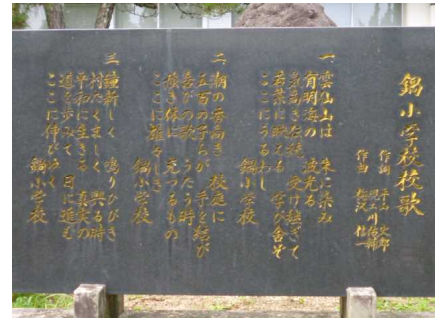 鍋小学校校歌
作詞 平山 文郎
一、雲仙山は 朱に染み
有明海の 波光る
貴高き伝統 受け継ぎて
若葉に映える 学び舎ぞ
ここにうるわし
鍋小学校
二、潮の香高き 校庭に
五百の子らが 手を結び
喜びの歌 うたう時
強き体に 充つるもの
ここに雄々しき
鍋小学校
三、鐘新しく 鳴りひびき
村たくましく 興る時
平和に生きる 真実の
道を歩みて 日に進む
ここに伸びゆく
鍋小学校